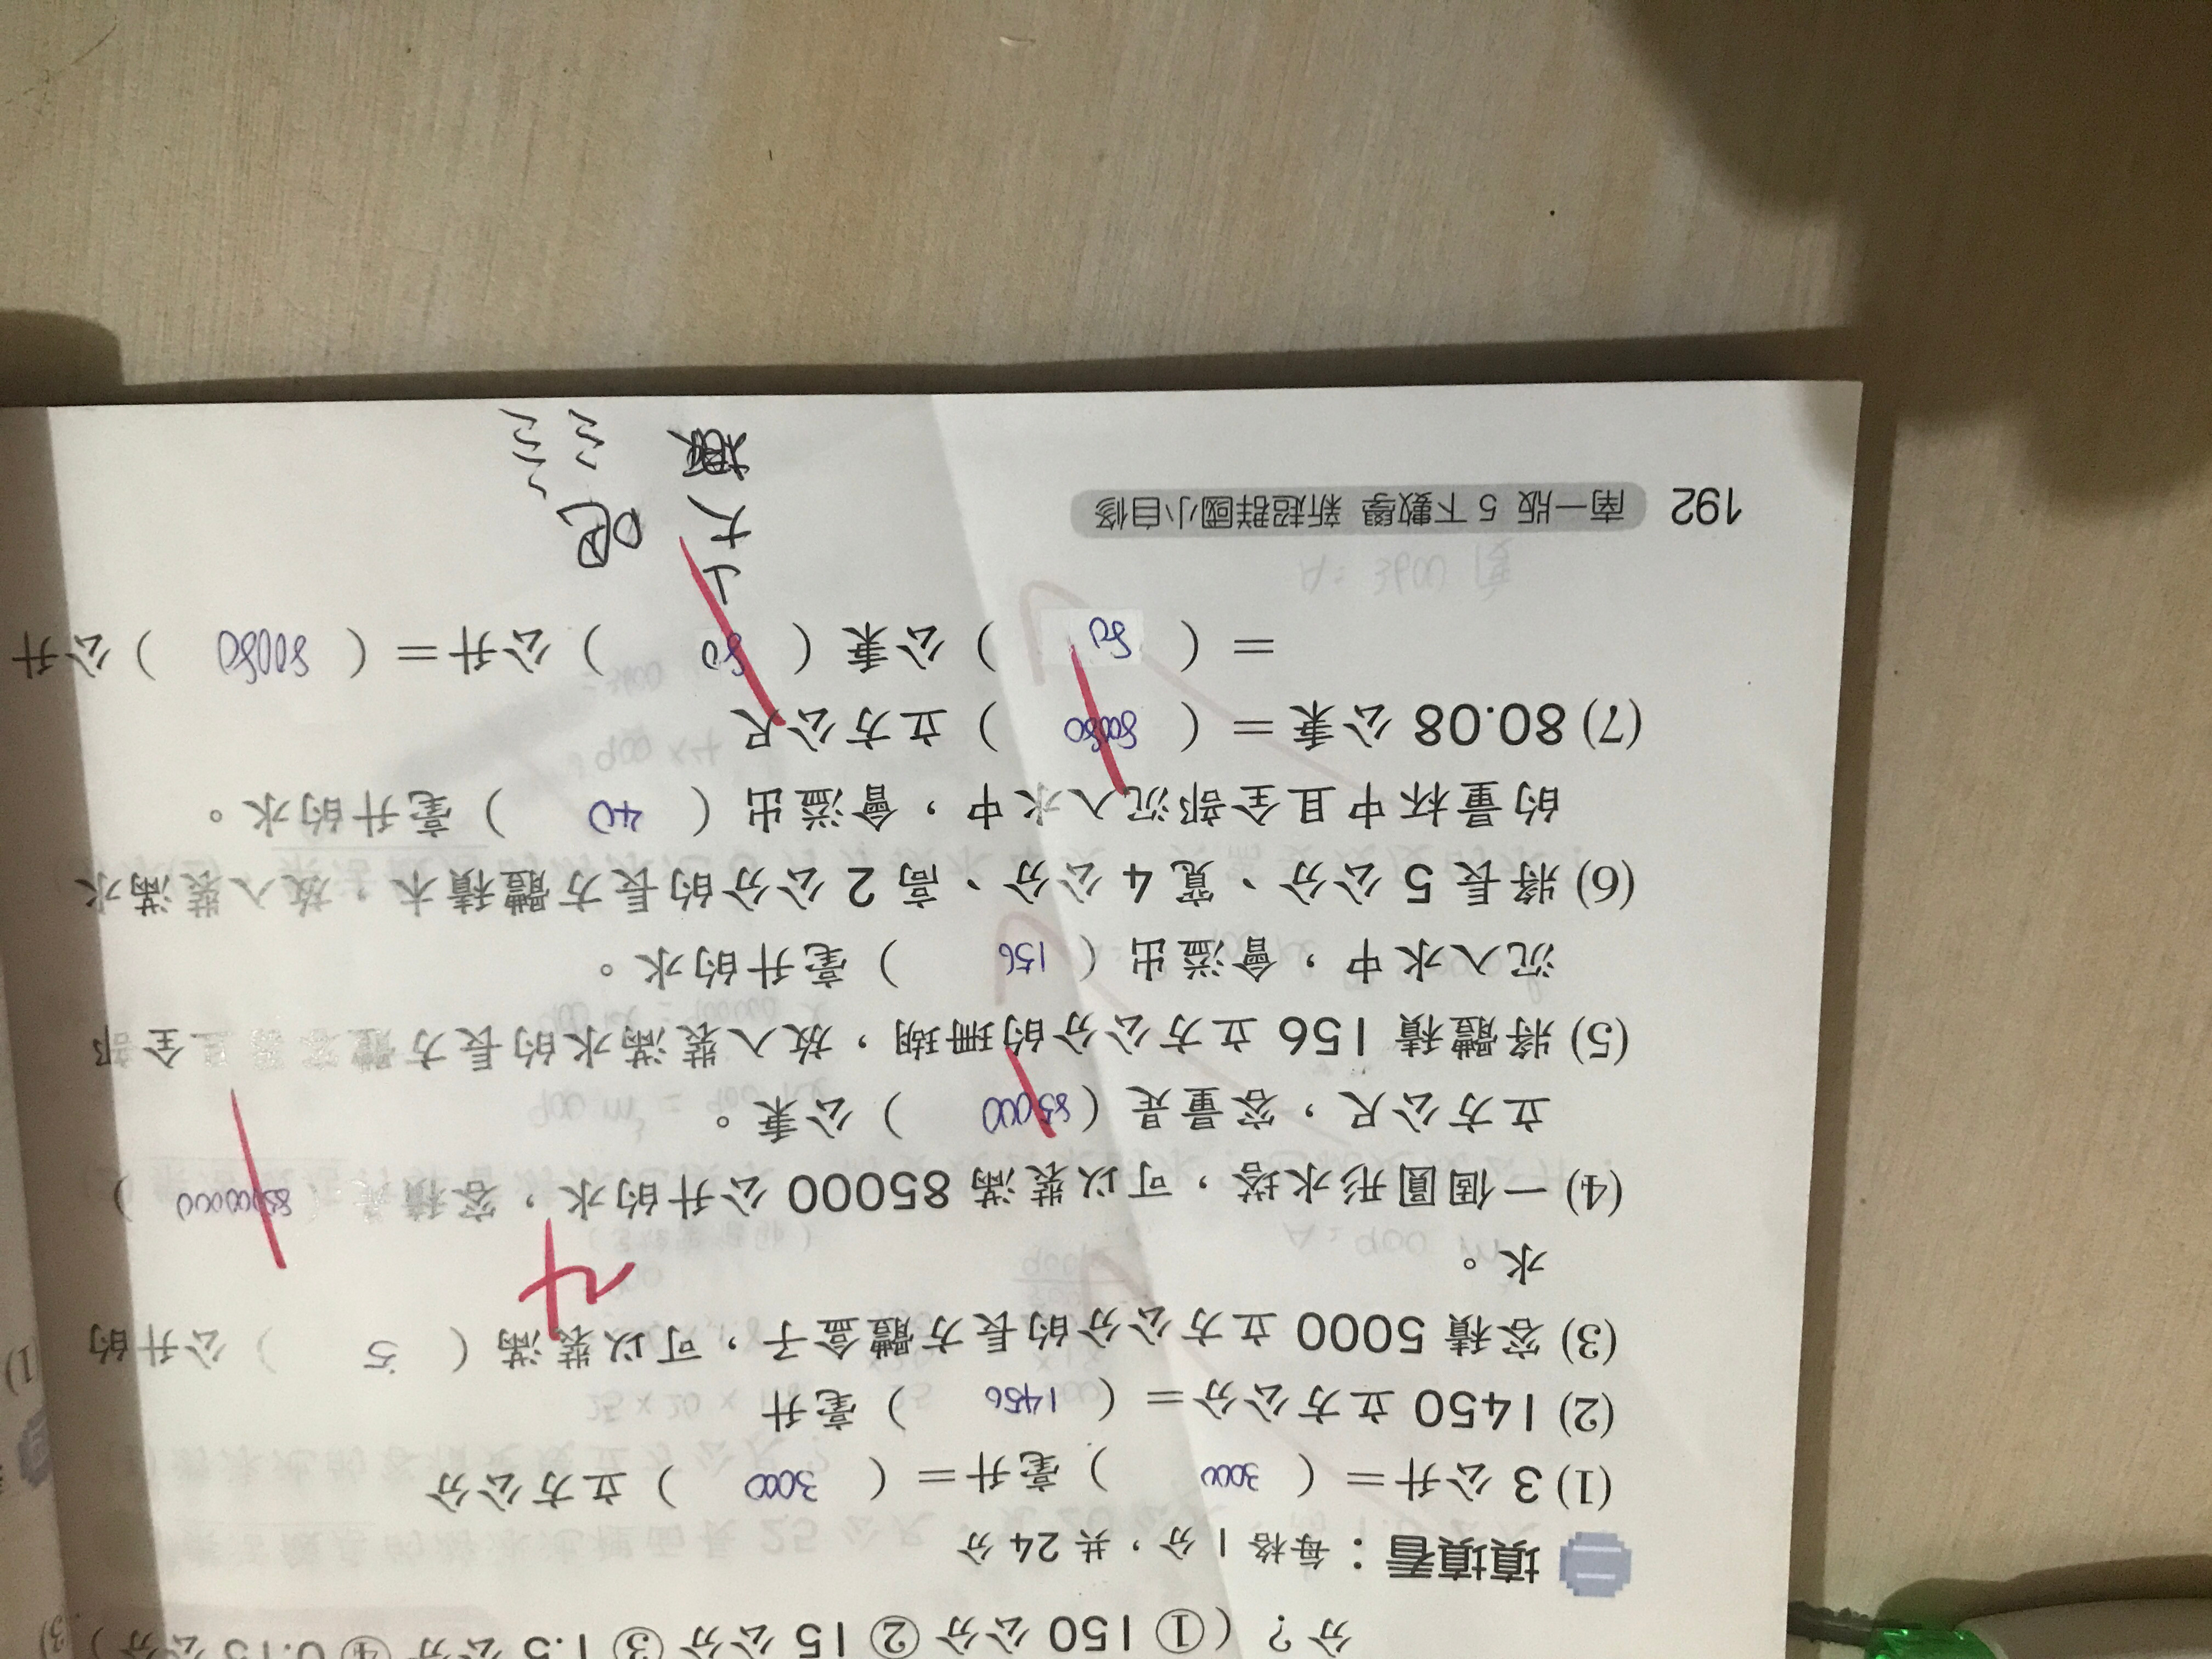 分？（① 150 公分 ② 15 公分 ③ 1.5 公分 ④ 0.15 公分）
二 填填看：每格 1 分，共 24 分
(1) 3 公升＝（3000）毫升＝（3000）立方公分
(2) 1450 立方公分＝（1456）毫升
(3) 容積 5000 立方公分的長方體盒子，可以裝滿（5）公升的
水。
4
(4) 一個圓形水塔，可以裝滿 85000 公升的水，容積是（85000000）
立方公尺，容量是（85000）公秉。
(5) 將體積 156 立方公分的珊瑚，放入裝滿水的長方體容器且全部
沉入水中，會溢出（156）毫升的水。
(6) 將長 5 公分、寬 4 公分、高 2 公分的長方體積木，放入裝滿水
的量杯中且全部沉入水中，會溢出（40）毫升的水。
(7) 80.08 公秉＝（80080）立方公尺
＝（80）公秉（80）公升＝（80080）公升
192 南一版 5 下數學 新超群國小自修
A：3600 個
大
吧